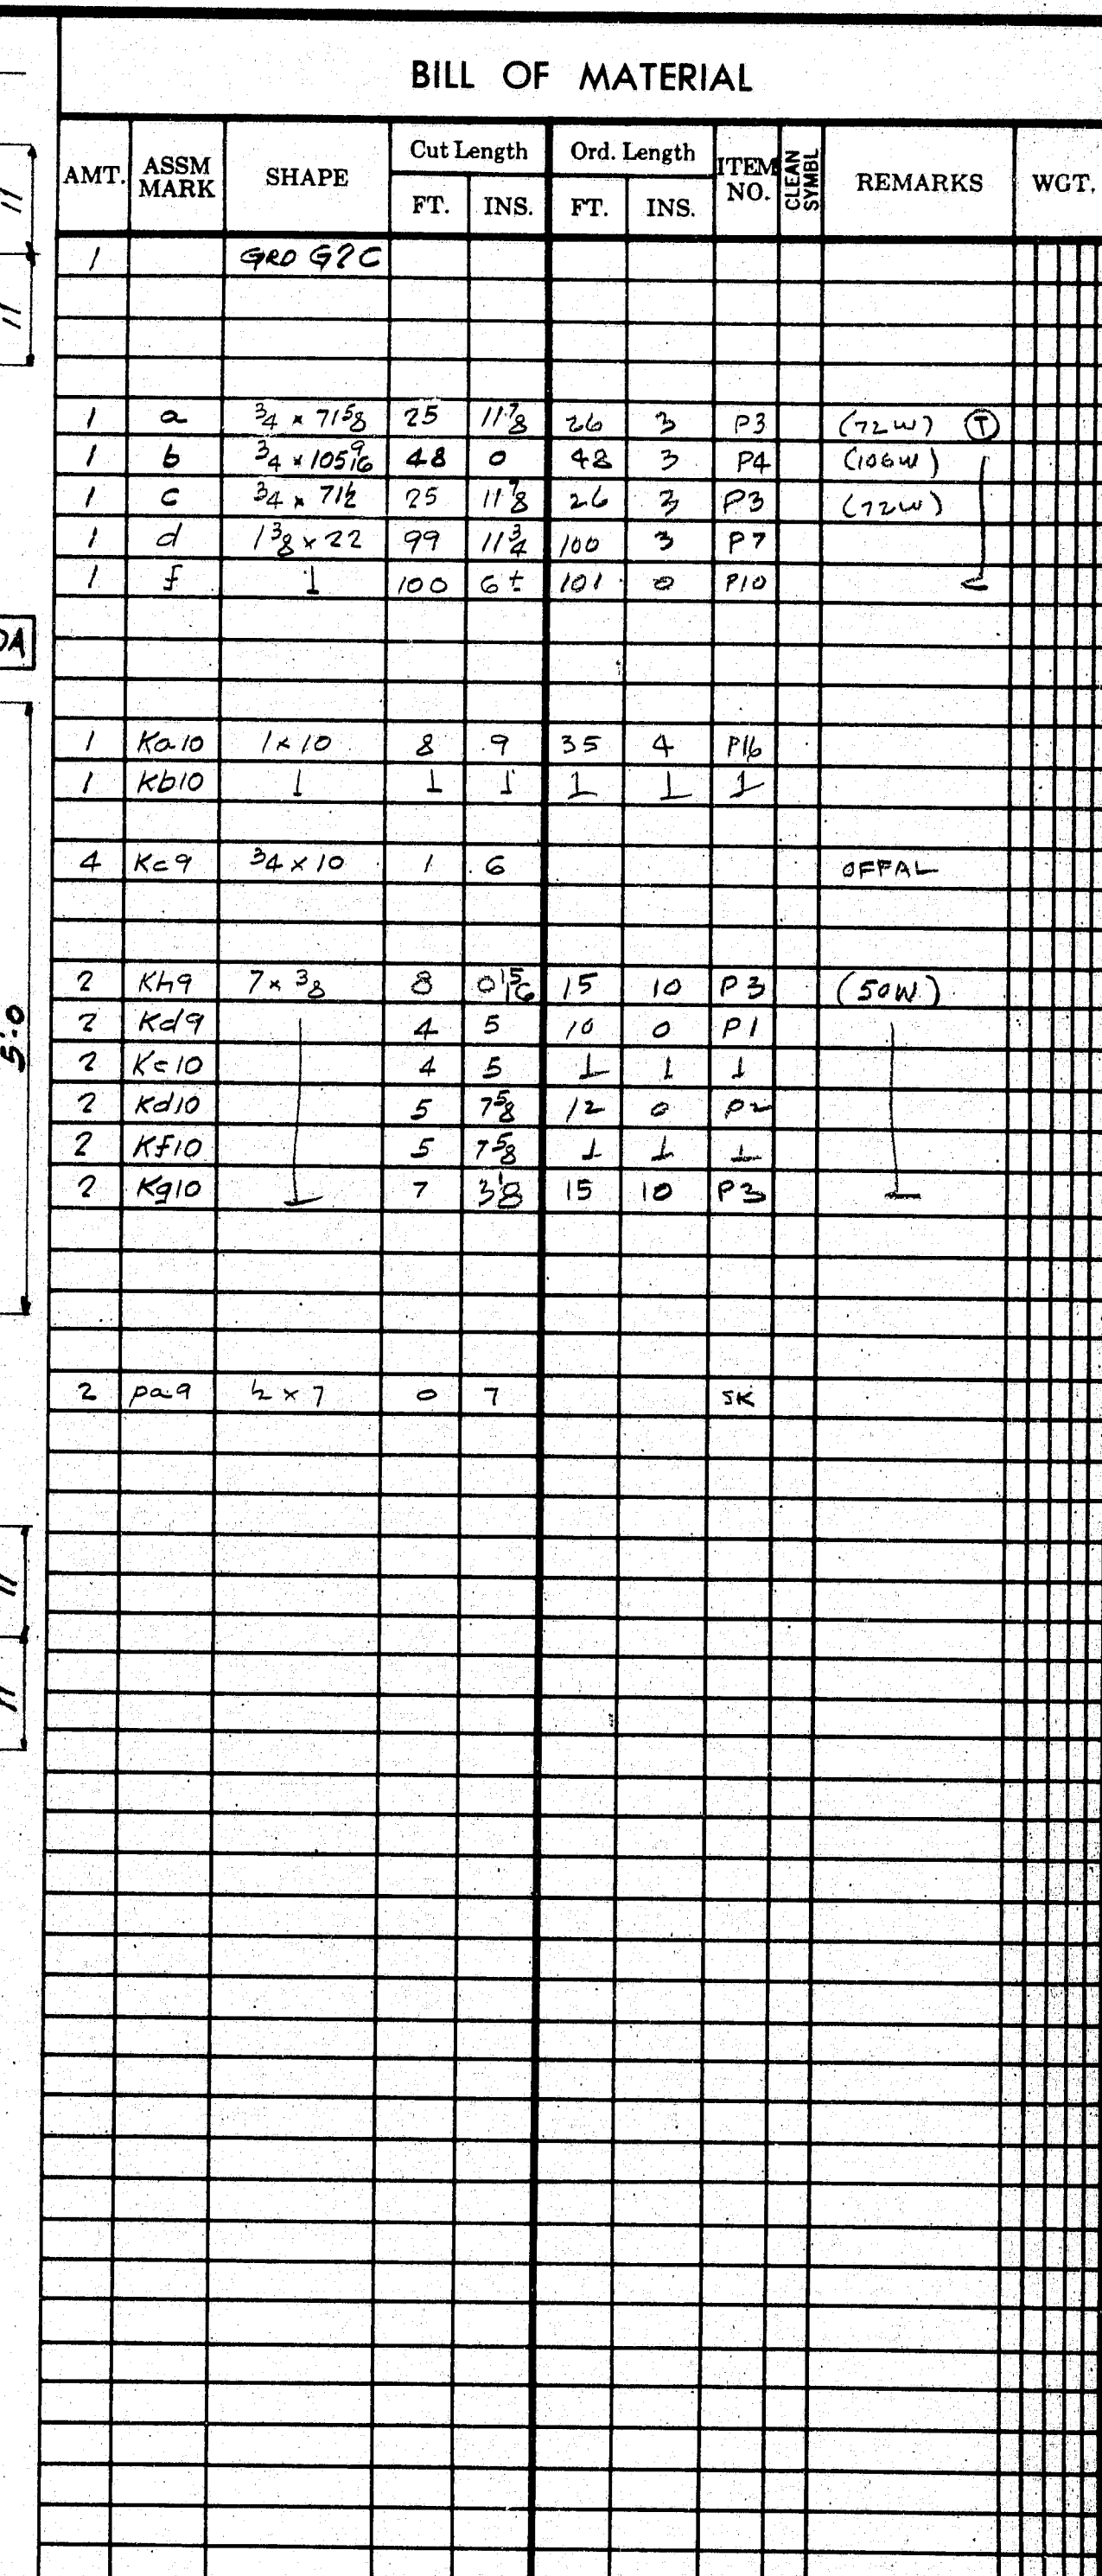 BILL OF MATERIAL
AMT. ASSM MARK SHAPE Cut Length FT. INS. Ord. Length FT. INS. ITEM NO. CLEAN SYMBL REMARKS WGT.
1 GRD G2C
1 a 3/4 × 71 5/8 25 11 7/8 26 3 P3 (72W) Ⓣ
1 b 3/4 × 105 9/16 48 0 48 3 P4 (106W)
1 c 3/4 × 71 1/2 25 11 7/8 26 3 P3 (72W)
1 d 1 3/8 × 22 99 11 3/4 100 3 P7
1 f ↓ 100 6± 101 0 P10
1 Ka10 1×10 8 9 35 4 P16
1 Kb10 ↓ ↓ ↓ ↓ ↓ ↓
4 Kc9 3/4 × 10 1 6 OFFAL
2 Kh9 7 × 3/8 8 0 15/16 15 10 P3 (50W)
2 Kd9 4 5 10 0 P1
2 Kc10 4 5 ↓ ↓ ↓
2 Kd10 5 7 5/8 12 0 P2
2 Kf10 5 7 5/8 ↓ ↓ ↓
2 Kg10 ↓ 7 3 1/8 15 10 P3 ↓
2 pa9 1/2 × 7 0 7 SK
5'-0
11
11
11
11